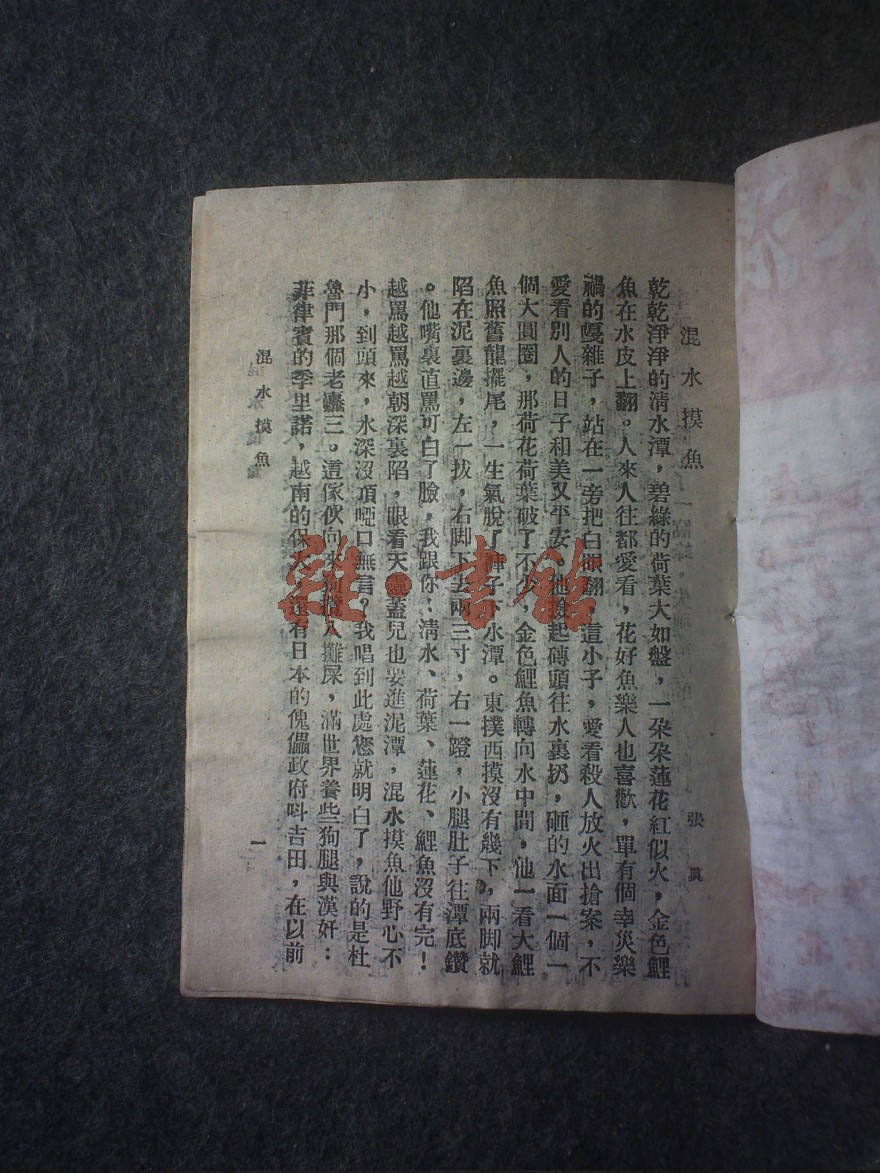 混水摸魚
張真
乾乾淨淨的清水潭，碧綠的荷葉大如盤，一朶朶蓮花紅似火，金色鯉
魚在水皮上翻。人來人往都愛看，花好魚樂人也喜歡，單有個幸災樂
禍的憂雜子，站在一旁把白眼翻，這小子，愛看殺人放火出搶案，不
愛看別人的日子和美又平安，他撿起磚頭往水裏扔，砸的水面一個一
個大圓圈，那荷花荷葉破了不少，金色鯉魚轉向水中間，他一看大鯉
魚照舊龍擺尾，一生氣脫了褲子下水潭。東撲西摸沒有幾下，兩脚就
陷在泥裏邊，左一拔，右脚下去兩三寸，右一蹬，小腿肚子往潭底鑽
。他嘴裏直罵可白了臉，我跟你：清水、荷葉、蓮花、鯉魚沒有完！
越罵越罵越朝深裏陷，眼看天靈蓋兒也要進泥潭，混水摸魚他野心不
小，到頭來，水深沒頂啞口無言？我唱到此處您就明白了，說的是杜
魯門那個老癟三。這傢伙向來狗攬八攤屎，滿世界養些狗腿與漢奸：
菲律賓的季里諾，越南的保大，還有日本的傀儡政府叫吉田，在以前
混水摸魚
一
雜·書館